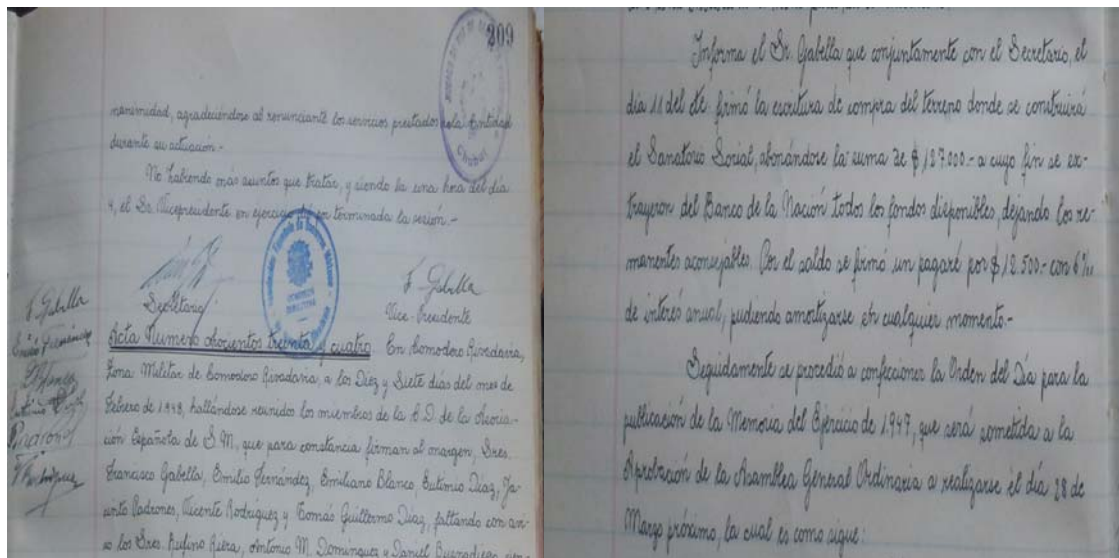 209
nanimidad, agradeciéndose al renunciante los servicios prestados a la Entidad
durante su actuación.-
No habiendo más asuntos que tratar, y siendo la una hora del día
4, el Sr. Vicepresidente en ejercicio dá por terminada la sesión.-
F. Gabella
Secretario
Vice-Presidente
Acta Numero ochocientos treinta y cuatro En Comodoro Rivadavia,
Zona Militar de Comodoro Rivadavia, a los Diez y Siete días del mes de
Febrero de 1948, hallándose reunidos los miembros de la C.D. de la Asocia-
ción Española de S.M., que para constancia firman al margen, Sres.
Francisco Gabella, Emilio Fernández, Emiliano Blanco, Eutimio Díaz, Ja-
cinto Padrones, Vicente Rodríguez y Tomás Guillermo Díaz, faltando con avi-
so los Sres. Rufino Riera, Antonio M. Domínguez y Daniel Buenadicha, sien-
F. Gabella
Emilio Fernández
Padrones
Chubut
Informa el Sr. Gabella que conjuntamente con el Secretario, el
día 11 del cte. firmó la escritura de compra del terreno donde se construirá
el Sanatorio Social, abonándose la suma de $ 127.000.- a cuyo fin se ex-
trayeron del Banco de la Nación todos los fondos disponibles, dejando los re-
manentes aconsejables. Por el saldo se firmó un pagaré por $ 12.500.- con 6%
de interés anual, pudiendo amortizarse en cualquier momento.-
Seguidamente se procedió a confeccionar la Orden del Día para la
publicación de la Memoria del Ejercicio de 1947, que será sometida a la
Aprobación de la Asamblea General Ordinaria a realizarse el día 28 de
Marzo próximo, la cual es como sigue: